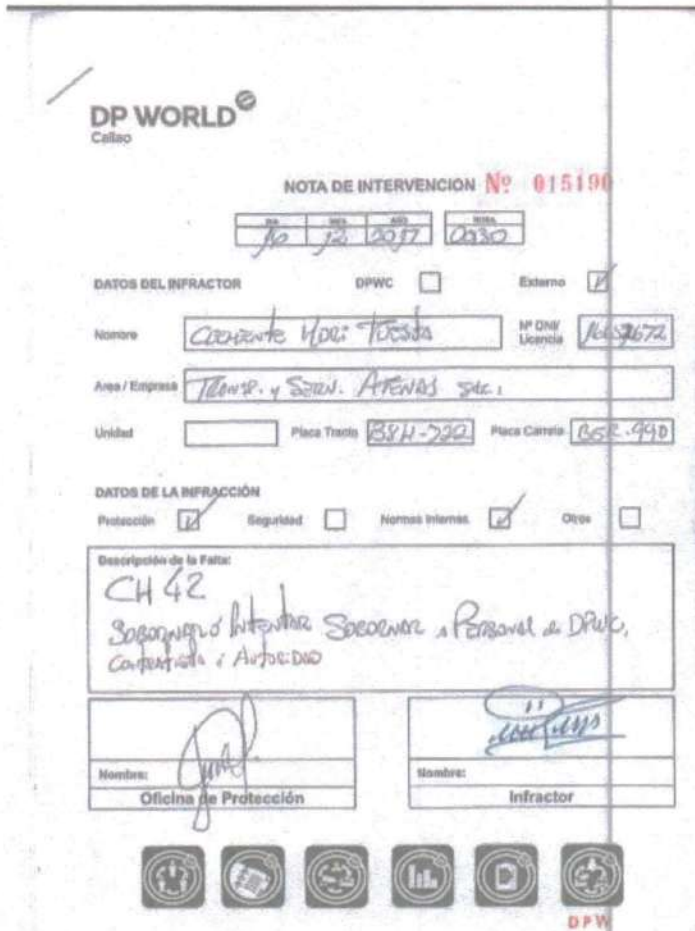 DP WORLD
Callao
NOTA DE INTERVENCION Nº 015190
DIA MES AÑO HORA
16 12 2017 0030
DATOS DEL INFRACTOR DPWC Externo
Nombre Mori Nº DNI/
Licencia
Area / Empresa Transp. y Serv. ATENAS SAC.
Unidad Placa Tracto B8H-722 Placa Carreta B5R-990
DATOS DE LA INFRACCIÓN
Protección Seguridad Normas Internas Otros
Descripción de la Falta:
CH 42
Sobornar ó Intentar Sobornar a Personal de DPWC,
Contratista ó Autoridad
Nombre: Nombre:
Oficina de Protección Infractor
DPW